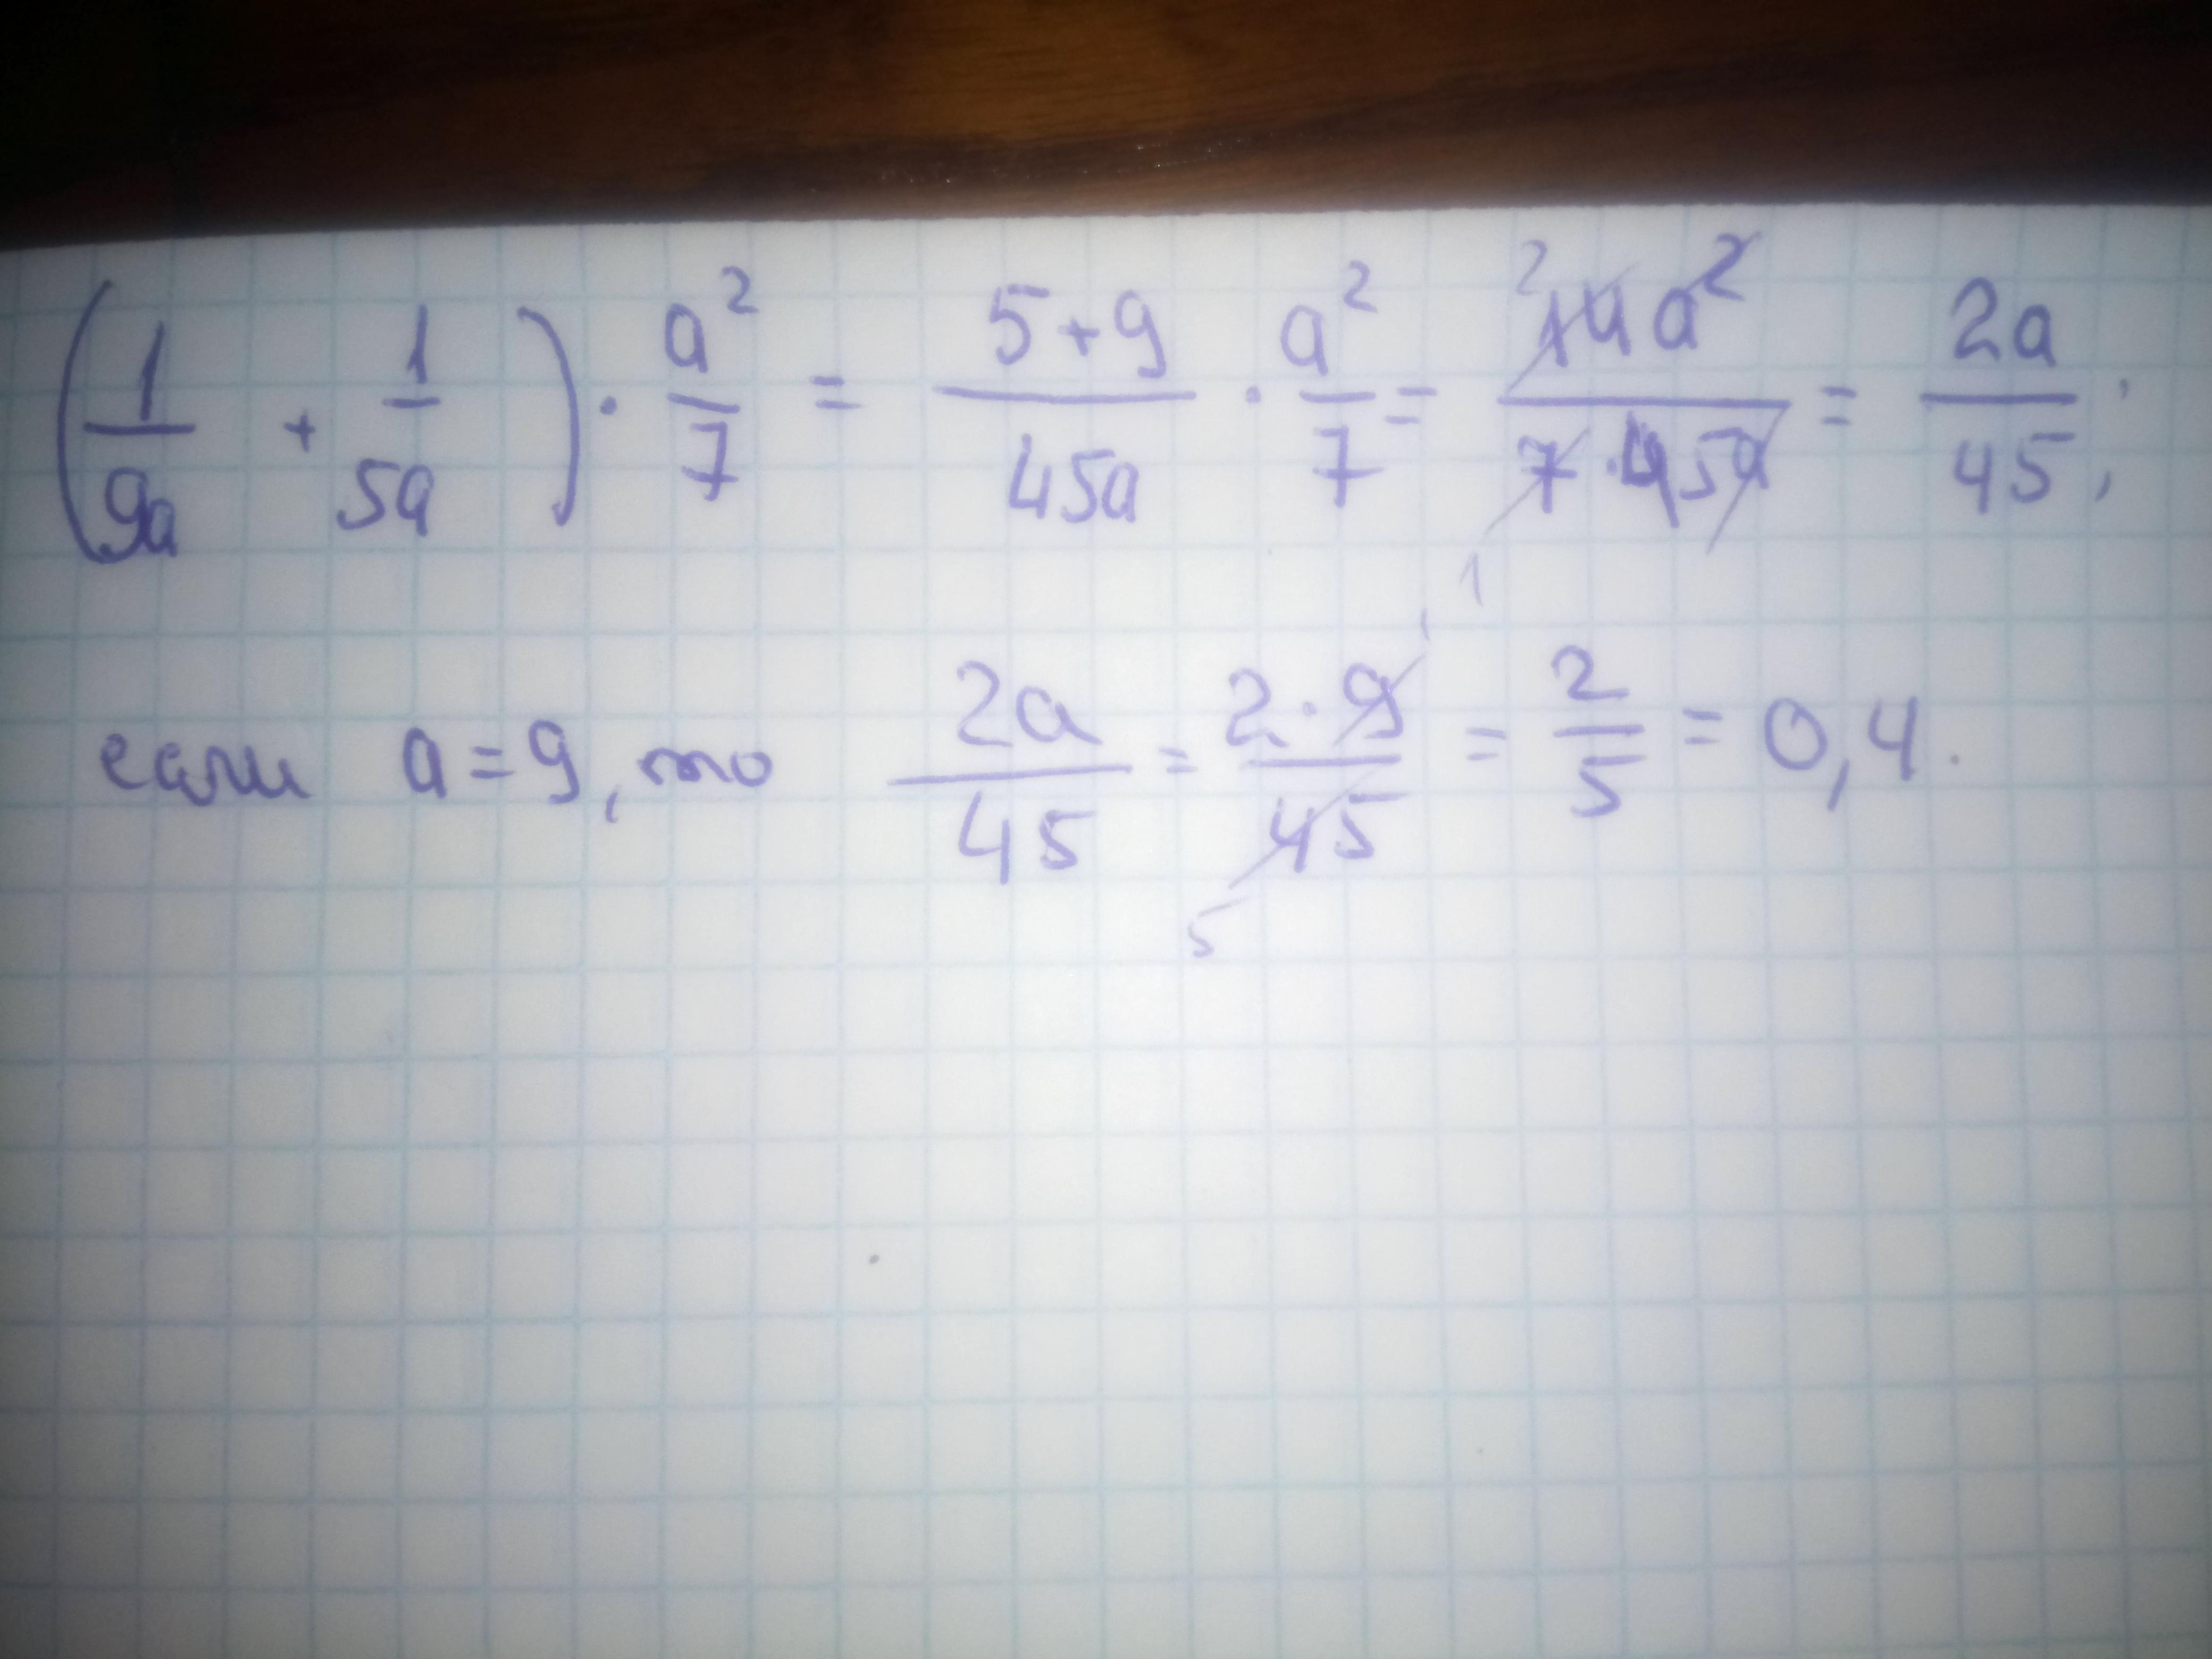 (1/9a + 1/5a) · a²/7 = (5+9)/45a · a²/7 = 14a²/(7·45a) = 2a/45;
если a=9, то 2a/45 = 2·9/45 = 2/5 = 0,4.